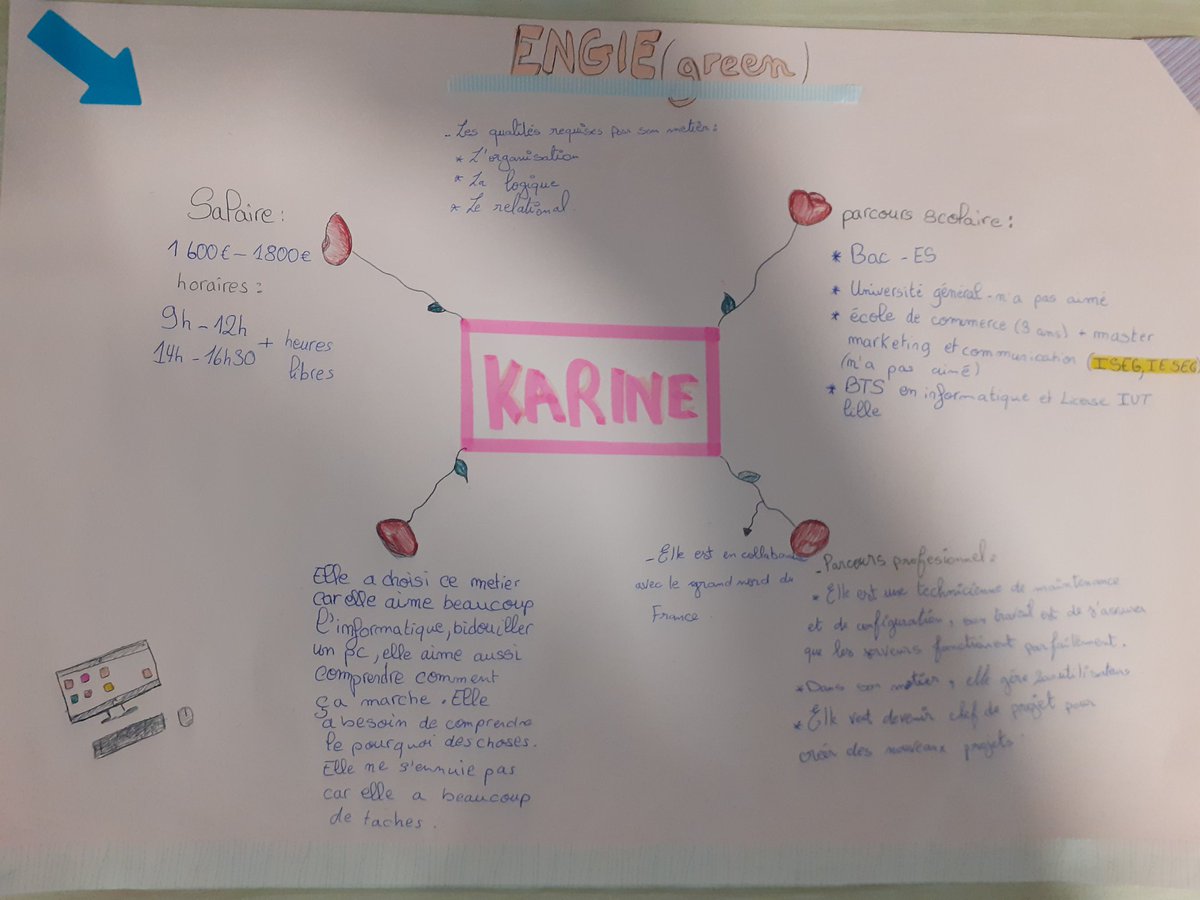 ENGIE (green)
- Les qualités requises pour son metier :
* L'organisation
* La logique
* Le relational
Salaire :
1 600€ - 1800€
horaires :
9h - 12h
14h - 16h30
+ heures
libres
parcours scolaire :
* Bac - ES
* Université général - n'a pas aimé
* école de commerce (3 ans) + master
marketing et communication (ISEG, IESEG)
(n'a pas aimé)
* BTS en informatique et License IUT
lille
KARINE
Elle a choisi ce metier
car elle aime beaucoup
l'informatique, bidouiller
un pc, elle aime aussi
comprendre comment
ça marche. Elle
a besoin de comprendre
le pourquoi des choses.
Elle ne s'ennuie pas
car elle a beaucoup
de taches.
- Elle est en
avec le grand nord de
France
- Parcours profesionnel :
* Elle est une technicienne de maintenance
et de configuration, son travail est de s'assurer
que les serveurs fonctionent parfaitement.
* Dans son métier, elle gère utilisateurs
* Elle veut devenir chef de projet pour
créer des nouveaux projets